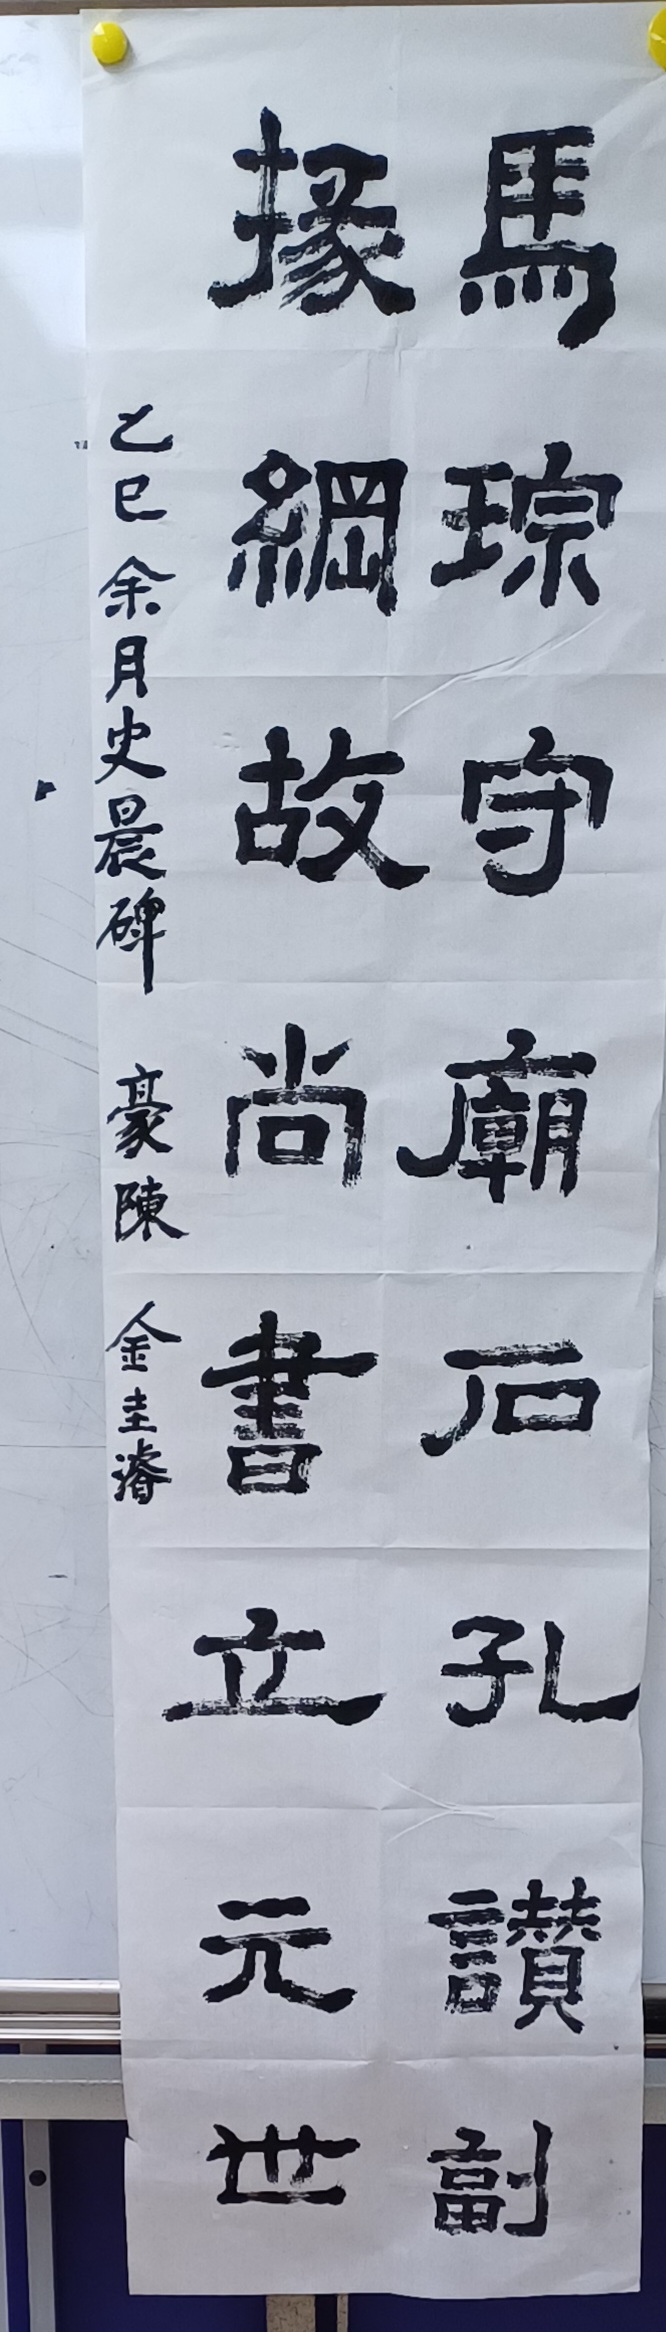 馬琮守廟石孔讃副
掾綱故尚書立元世
乙巳余月史晨碑 豪陳 金圭濬